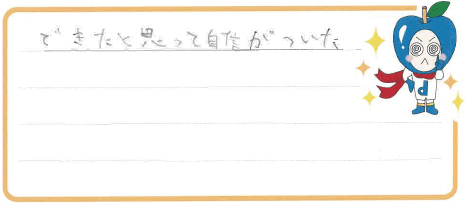 できたと思って自信がついた
d